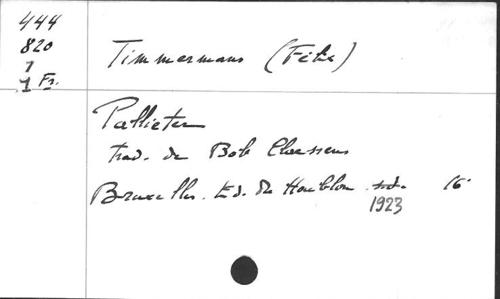 444
820
1
1 Fr.
Timmermans (Félix)
Pallieter
trad. de Bob Claessens
Bruxelles. Ed. du Houblon s.d. 16°
1923